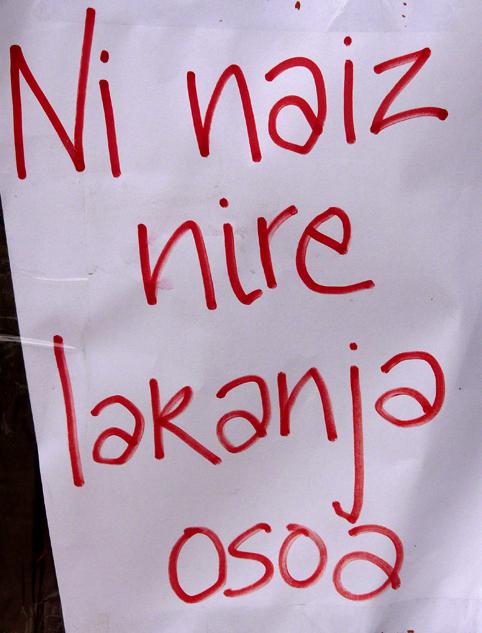 Ni naiz
nire
lakanja
osoa